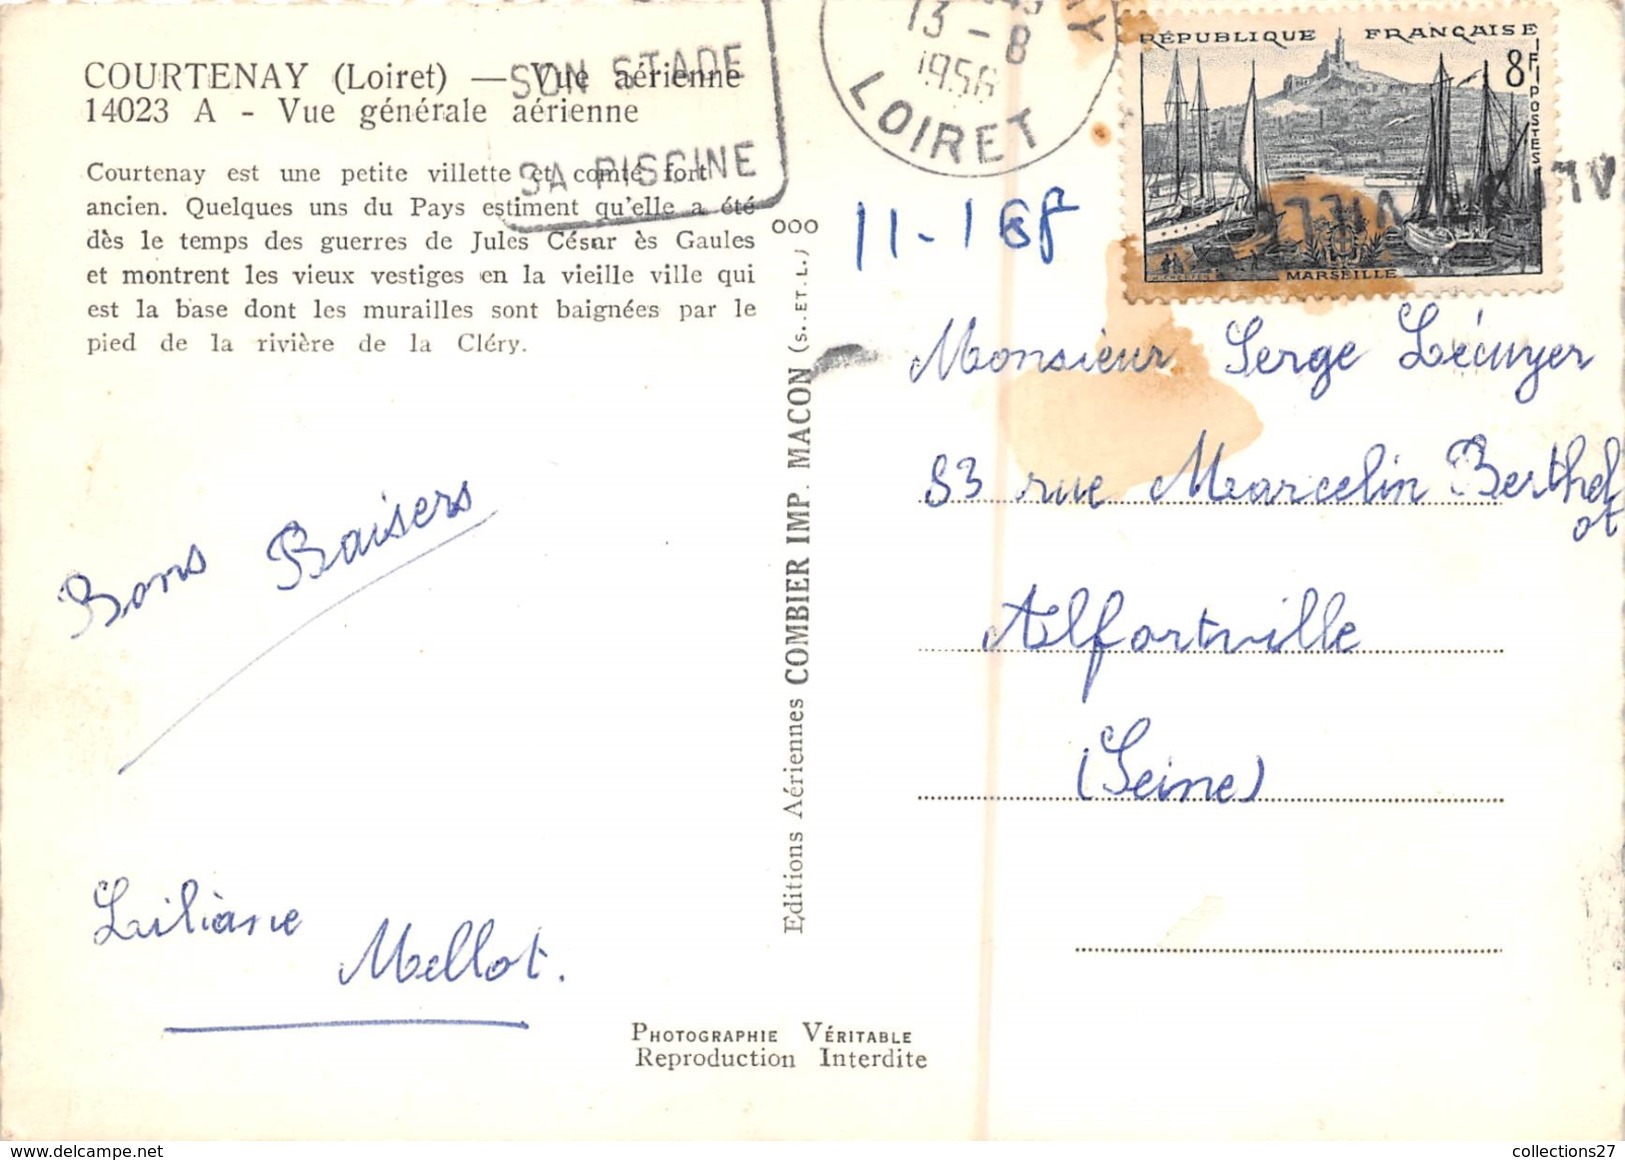 COURTENAY (Loiret) — Vue aérienne
14023 A - Vue générale aérienne
Courtenay est une petite villette et comté fort
ancien. Quelques uns du Pays estiment qu'elle a été
dès le temps des guerres de Jules César ès Gaules
et montrent les vieux vestiges en la vieille ville qui
est la base dont les murailles sont baignées par le
pied de la rivière de la Cléry.
SON STADE
SA PISCINE
13 - 8
1956
LOIRET
RÉPUBLIQUE FRANÇAISE
8F
POSTES
MARSEILLE
Bons Baisers
Liliane
Mellot.
OOO
Editions Aériennes COMBIER IMP. MACON (S..ET.L.)
Monsieur Serge Lécuyer
83 rue Marcelin Berthel
ot
Alfortville
(Seine)
PHOTOGRAPHIE VÉRITABLE
Reproduction Interdite
collections27